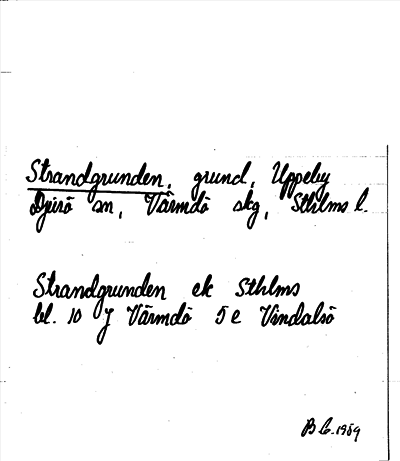 Strandgrunden, grund, Uppeby
Djurö sn, Värmdö skg, Sthlms l.
Strandgrunden ek Sthlms
bl. 10 J Värmdö 5 e Vindalsö
1959